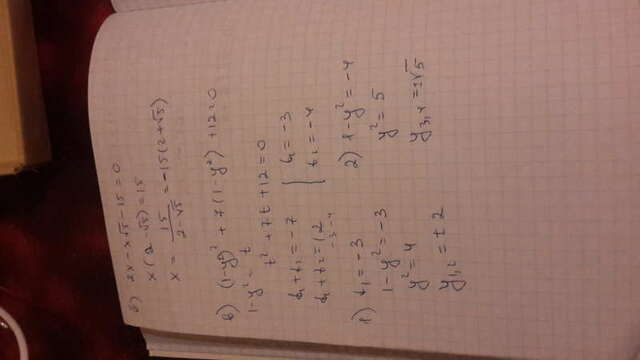 б) 2x - x√5 - 15 = 0
x(2 - √5) = 15
x = 15/(2-√5) = -15(2+√5)
в) (1-y²)² + 7(1-y²) + 12 = 0
1-y² = t
t² + 7t + 12 = 0
t₁ + t₂ = -7
t₁ = -3
t₂ = -4
1) t₁ = -3
1 - y² = -3
y² = 4
y₁,₂ = ±2
2) 1 - y² = -4
y² = 5
y₃,₄ = ±√5